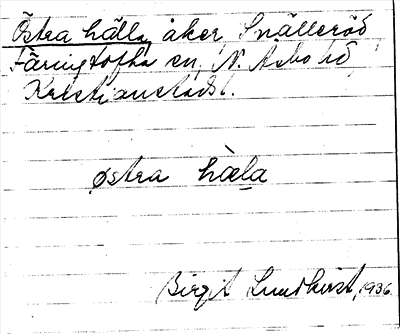 Östra hälla åker, Snälleröd,
Färingtofta sn, N. Åsbo hd,
Kristianstads l.
østra hàla
Birgit Lundkvist, 1936.